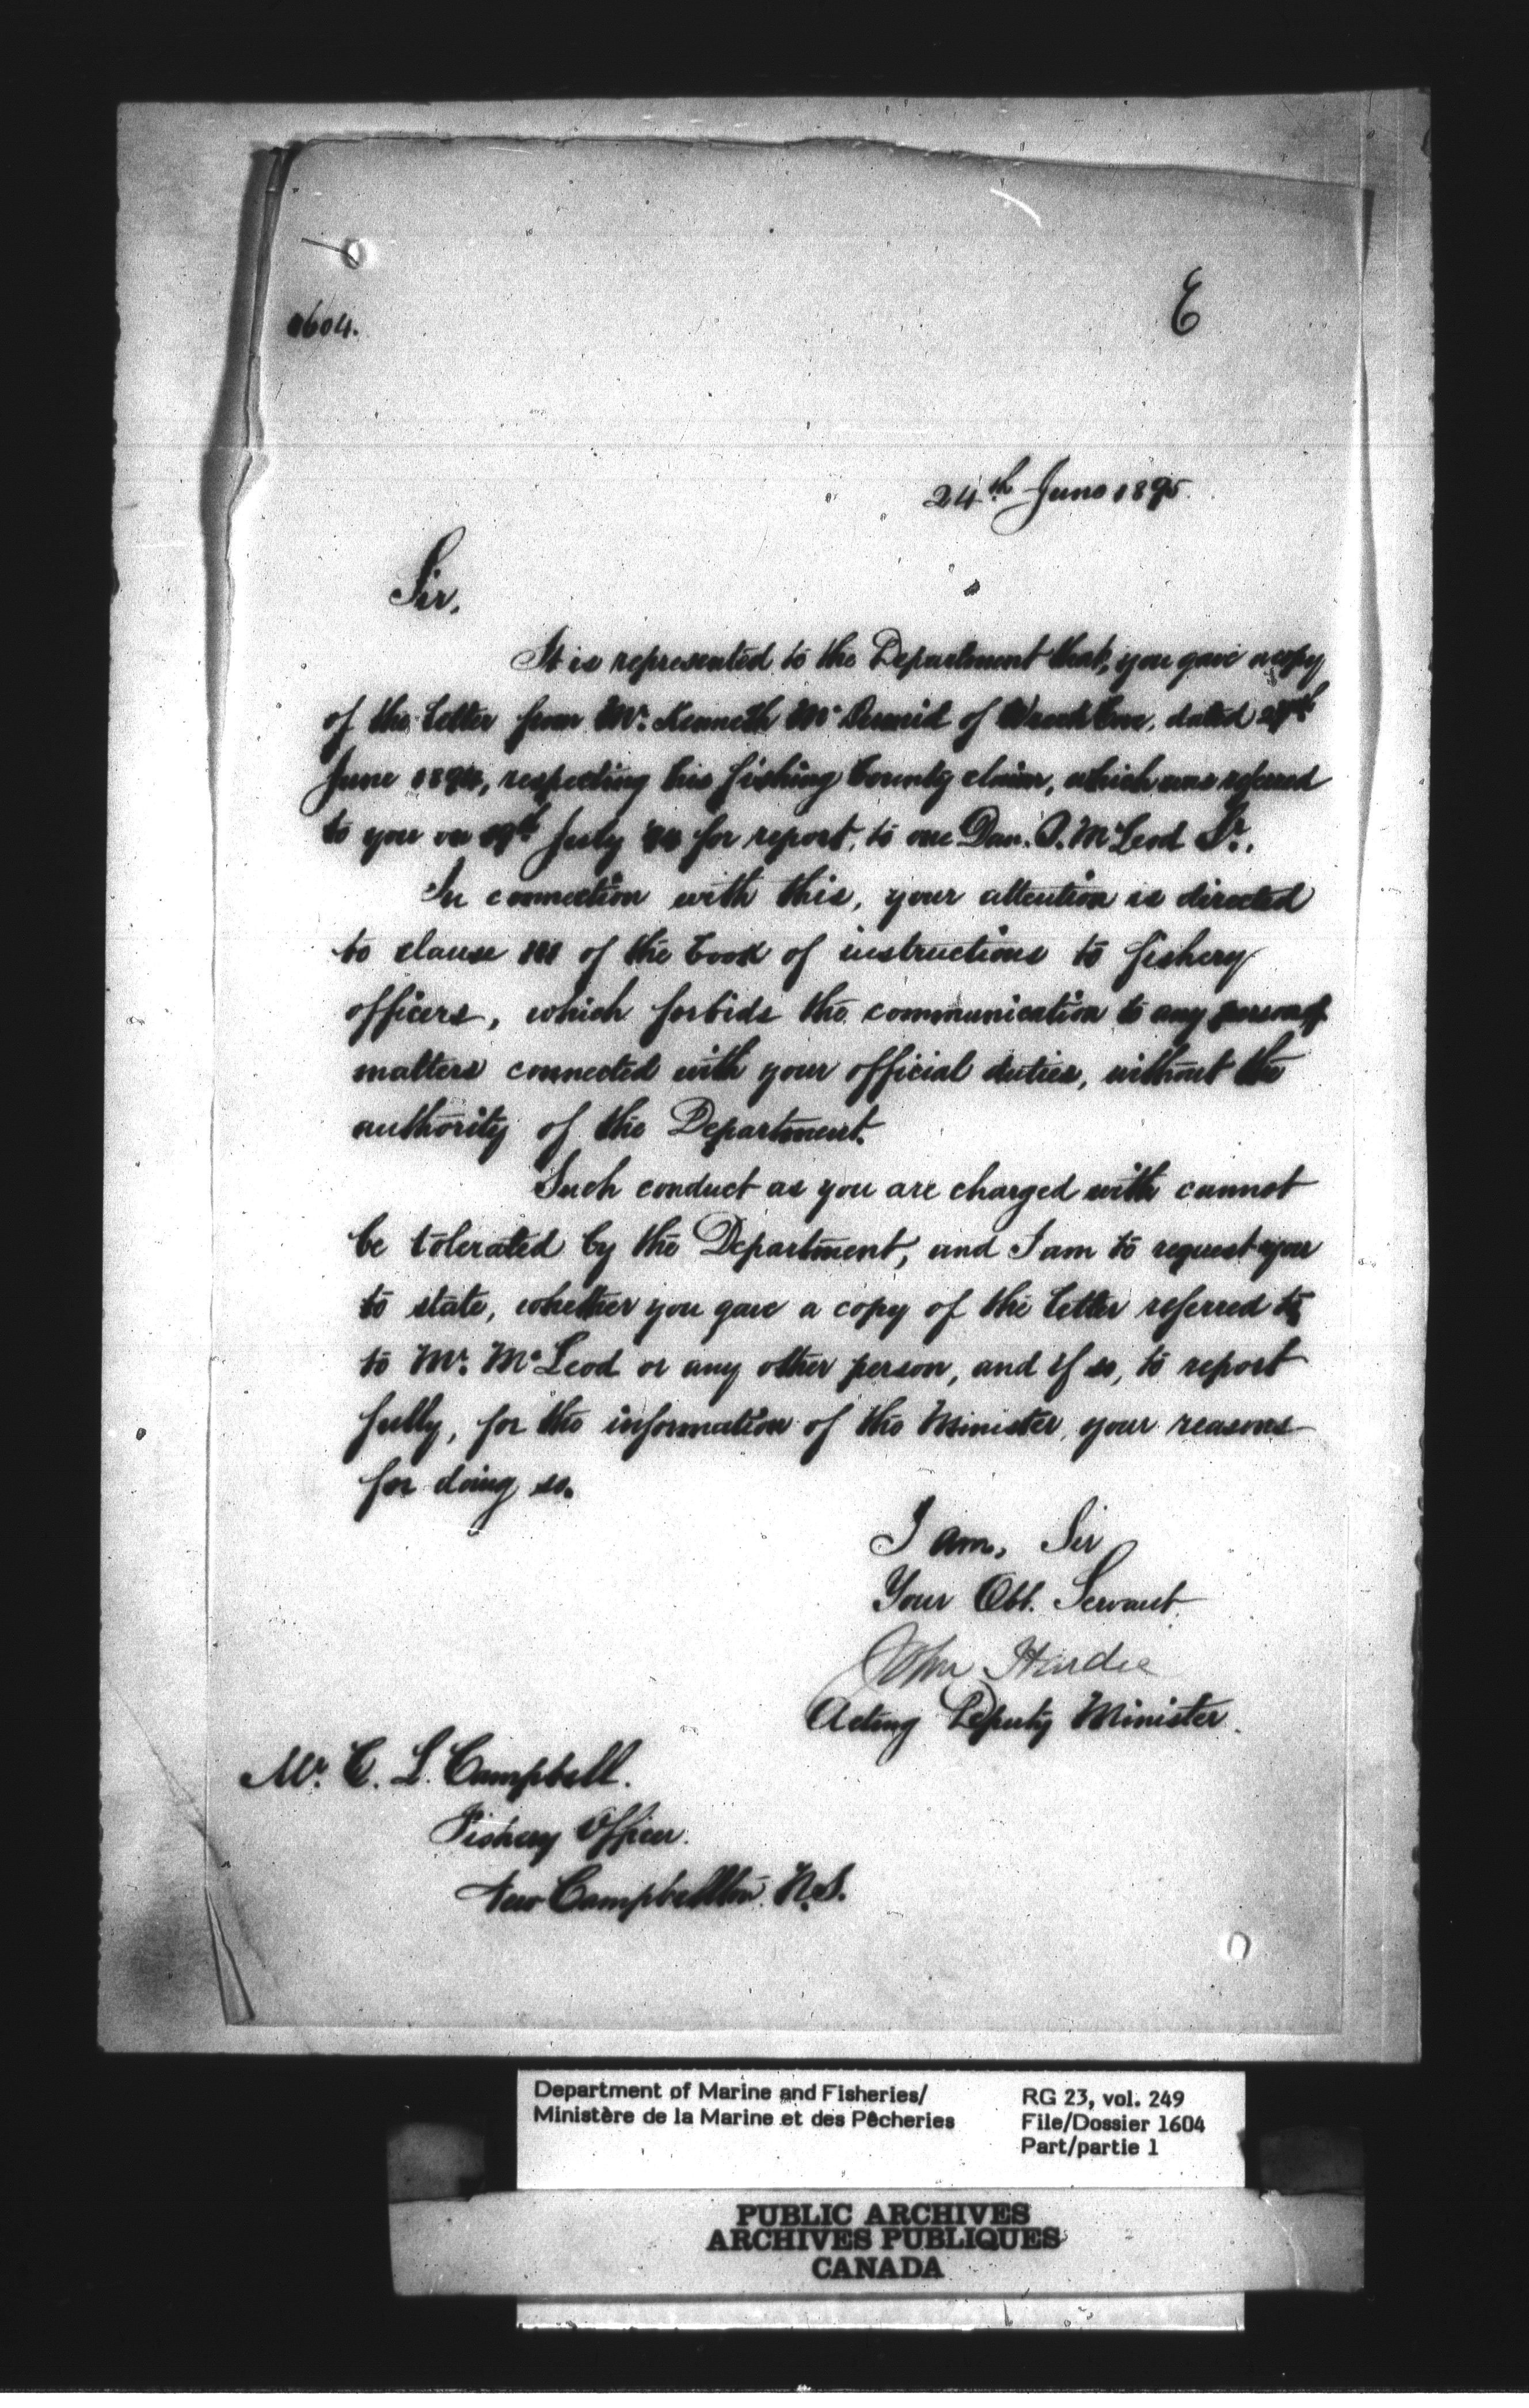 1604.
E
24th June 1895
Sir,
It is represented to the Department that, you gave a copy
of the letter from Mr. Kenneth McDermid of Wreck Cove, dated
June 1894, respecting his fishing bounty claim, which was referred
to you on 19th July '94 for report, to one Dan. A. McLeod Sr.
In connection with this, your attention is directed
to clause of the book of instructions to fishery
officers, which forbids the communication to any person of
matters connected with your official duties, without the
authority of the Department.
Such conduct as you are charged with cannot
be tolerated by the Department, and I am to request you
to state, whether you gave a copy of the letter referred to
to Mr. McLeod or any other person, and if so, to report
fully, for the information of the Minister, your reasons
for doing so.
I am, Sir
Your Obt. Servant
John Hardie
Acting Deputy Minister.
Mr. C. L. Campbell.
Fishery Officer.
New Campbellton. N.S.
Department of Marine and Fisheries/ RG 23, vol. 249
Ministère de la Marine et des Pêcheries File/Dossier 1604
Part/partie 1
PUBLIC ARCHIVES
ARCHIVES PUBLIQUES
CANADA